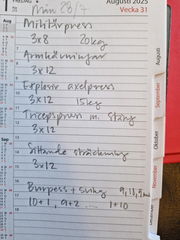 1 FREDAG
Augusti 2025
Vecka 31
Mån 28/7
Militärpress
3x8 20kg
Armhävningar
3x12
Explosiv axelpress
3x12 15kg
Tricepspress m. stång
3x12
Sittande sträckning
3x12
Burpees + 
10+1, 9+2 .... 1+10
Aug
Sep
September
Oktober
November
December